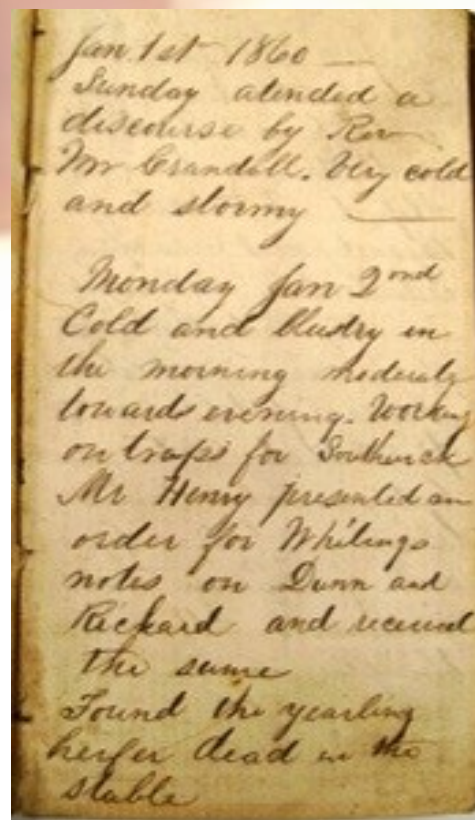 Jan 1st 1860 —
Sunday atended a
discourse by Rev
Mr Crandall. Very cold
and stormy —
Monday Jan 2ond
Cold and blustry in
the morning moderate
towards evening. Worked
on traps for Southwick
Mr Henry presented an
order for Whitings
notes on Dunn and
Rickard and received
the same
Found the yearling
heifer dead in the
stable